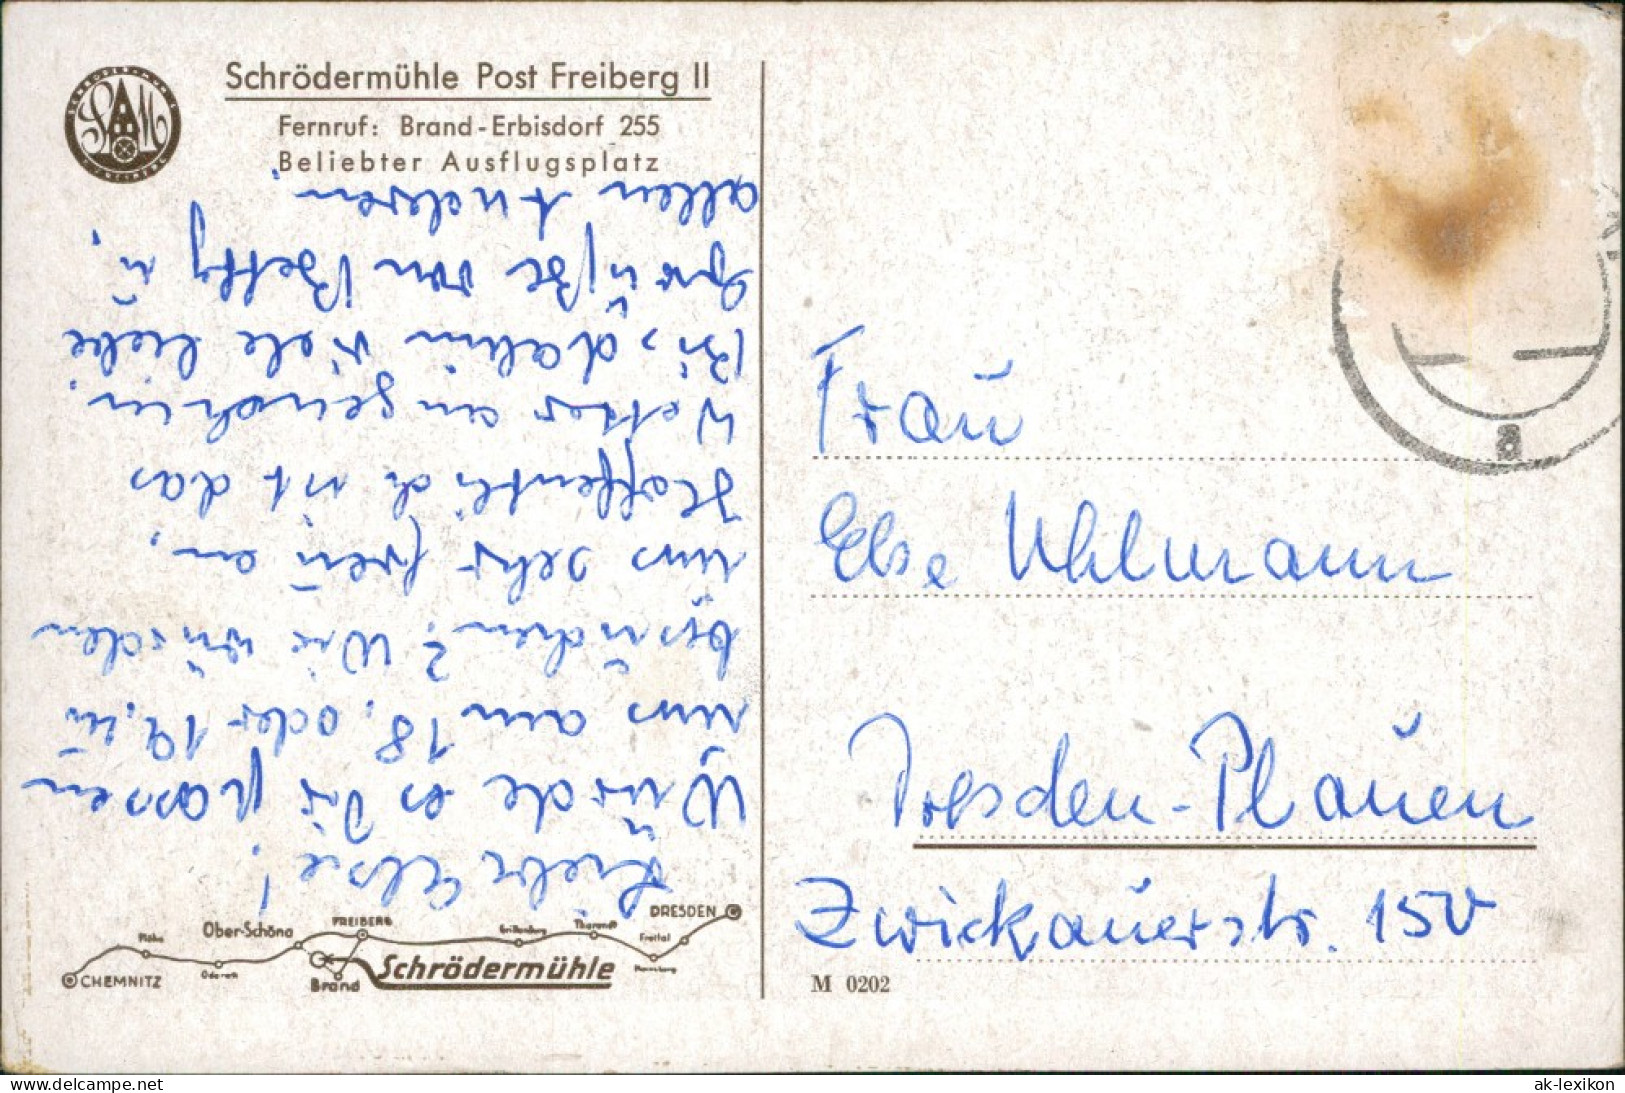 Schrödermühle Post Freiberg II
Fernruf: Brand-Erbisdorf 255
Beliebter Ausflugsplatz
Liebe Else!
Würde es Dir passen
uns am 18. oder 19. zu
besuchen? Wir würden
uns sehr freuen.
Hoffentlich ist das
Wetter angenehm.
Bis dahin viele liebe
Grüße von Betty u.
allen Anderen.
DRESDEN
FREIBERG
Ober-Schöna
Tharandt
Freital
Flöha
Oederan
CHEMNITZ
Brand
Schrödermühle
a
Frau
Else Uhlmann
Dresden-Plauen
Zwickauerstr. 150
M 0202
www.delcampe.net
ak-lexikon